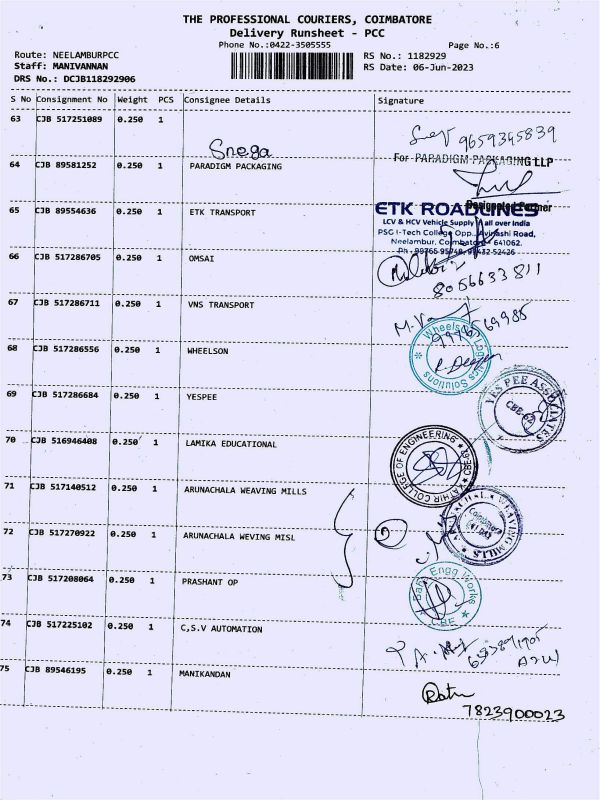 THE PROFESSIONAL COURIERS, COIMBATORE
Delivery Runsheet - PCC
Phone No.:0422-3505555
Page No.:6
Route: NEELAMBURPCC
RS No.: 1182929
Staff: MANIVANNAN
RS Date: 06-Jun-2023
DRS No.: DCJB118292906
S No Consignment No Weight PCS Consignee Details Signature
63 CJB 517251089 0.250 1
Snega
9659345839
64 CJB 89581252 0.250 1 PARADIGM PACKAGING
For PARADIGM PACKAGING LLP
Designated Partner
65 CJB 89554636 0.250 1 ETK TRANSPORT
ETK ROADLINES
LCV & HCV Vehicle Supply all over India
PSG I-Tech College Opp., Avinashi Road,
Neelambur, Coimbatore - 641062.
66 CJB 517286705 0.250 1 OMSAI
8056633811
67 CJB 517286711 0.250 1 VNS TRANSPORT
68 CJB 517286556 0.250 1 WHEELSON
Wheelson Logistics Solutions
69 CJB 517286684 0.250 1 YESPEE
YES PEE ASSOCIATES
70 CJB 516946408 0.250 1 LAMIKA EDUCATIONAL
KATHIR COLLEGE OF ENGINEERING
71 CJB 517140512 0.250 1 ARUNACHALA WEAVING MILLS
WEAVING MILLS
Coimbatore
72 CJB 517270922 0.250 1 ARUNACHALA WEVING MISL
73 CJB 517208064 0.250 1 PRASHANT OP
Engg Works
CBE
74 CJB 517225102 0.250 1 C,S.V AUTOMATION
75 CJB 89546195 0.250 1 MANIKANDAN
7823900023